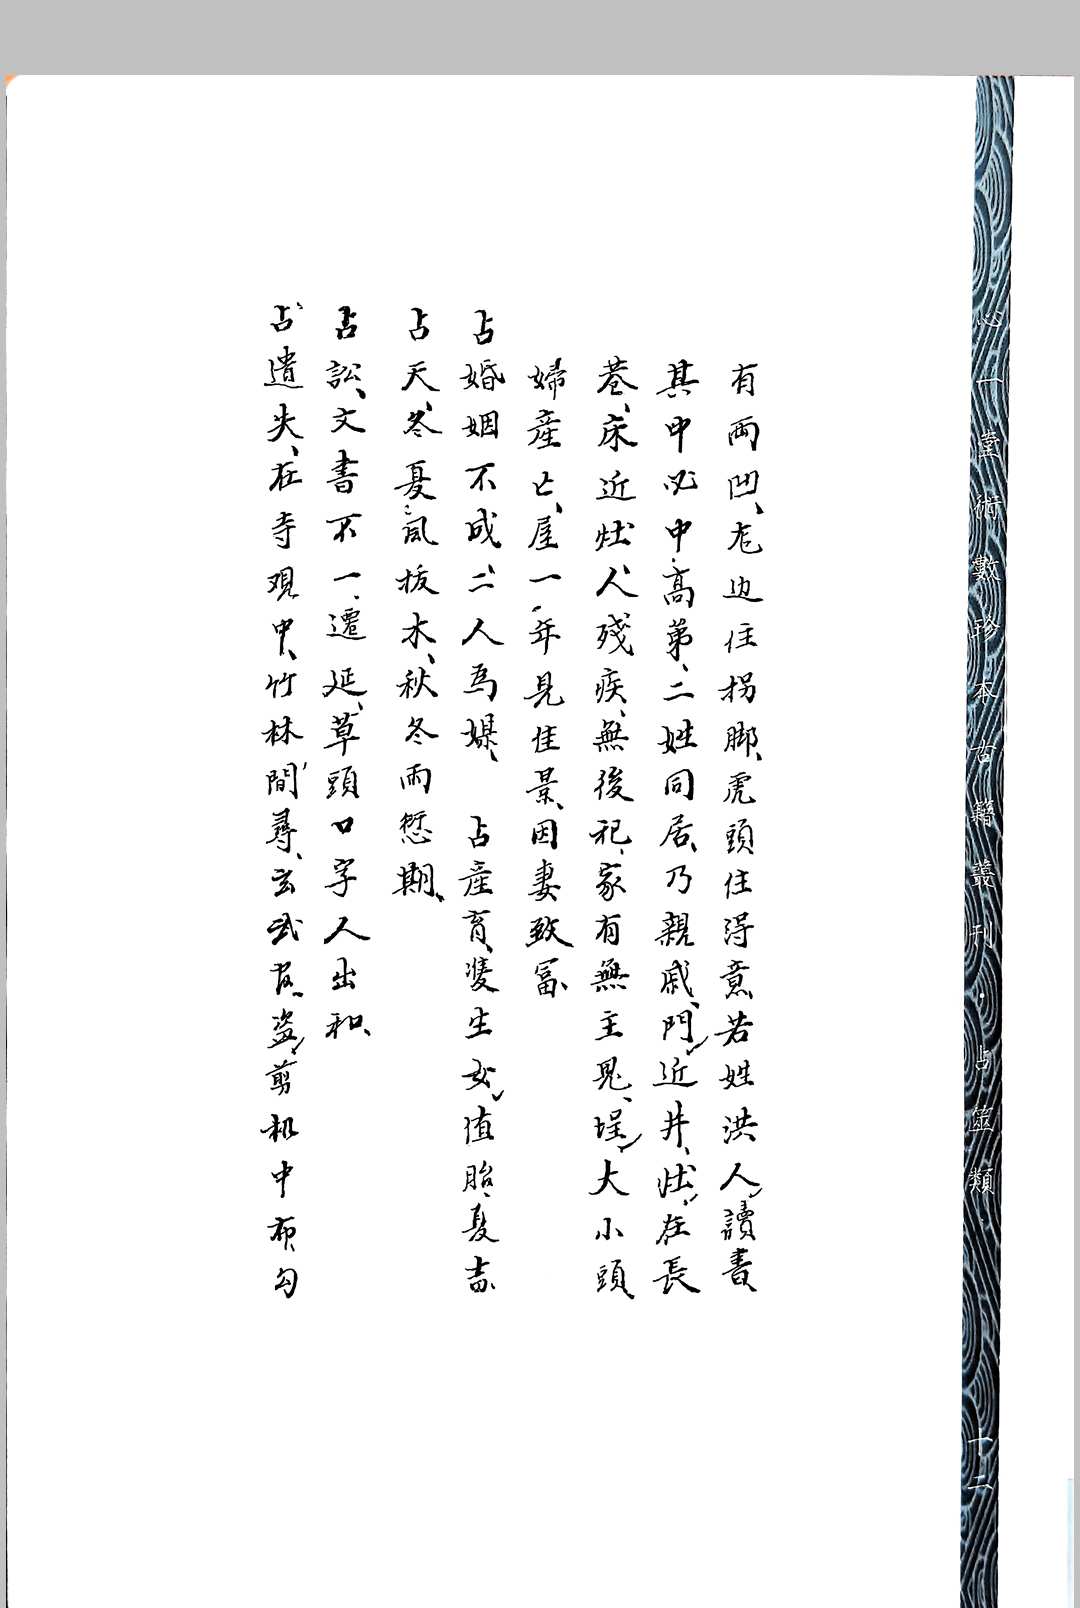 心一堂術數珍本古籍叢刊·占筮類·
十二
有兩凹、左边住拐脚、虎頭住得意若姓洪人、讀書、
其中必中、高第、二姓同居、乃親戚、門近井、灶、在長
巷、床近灶、人殘疾、無後祀、家有無主鬼、埕、大小頭、
婦產亡、屋一年見佳景、因妻致冨、
占婚姻不成、二人為媒、 占產育、雙生女、值胎、夏吉、
占天、冬夏風拔木、秋冬雨愆期、
占訟、文書不一、遷延、草頭口字人出和、
占遺失、在寺观中、竹林間尋、玄武有盜、剪机中布勾